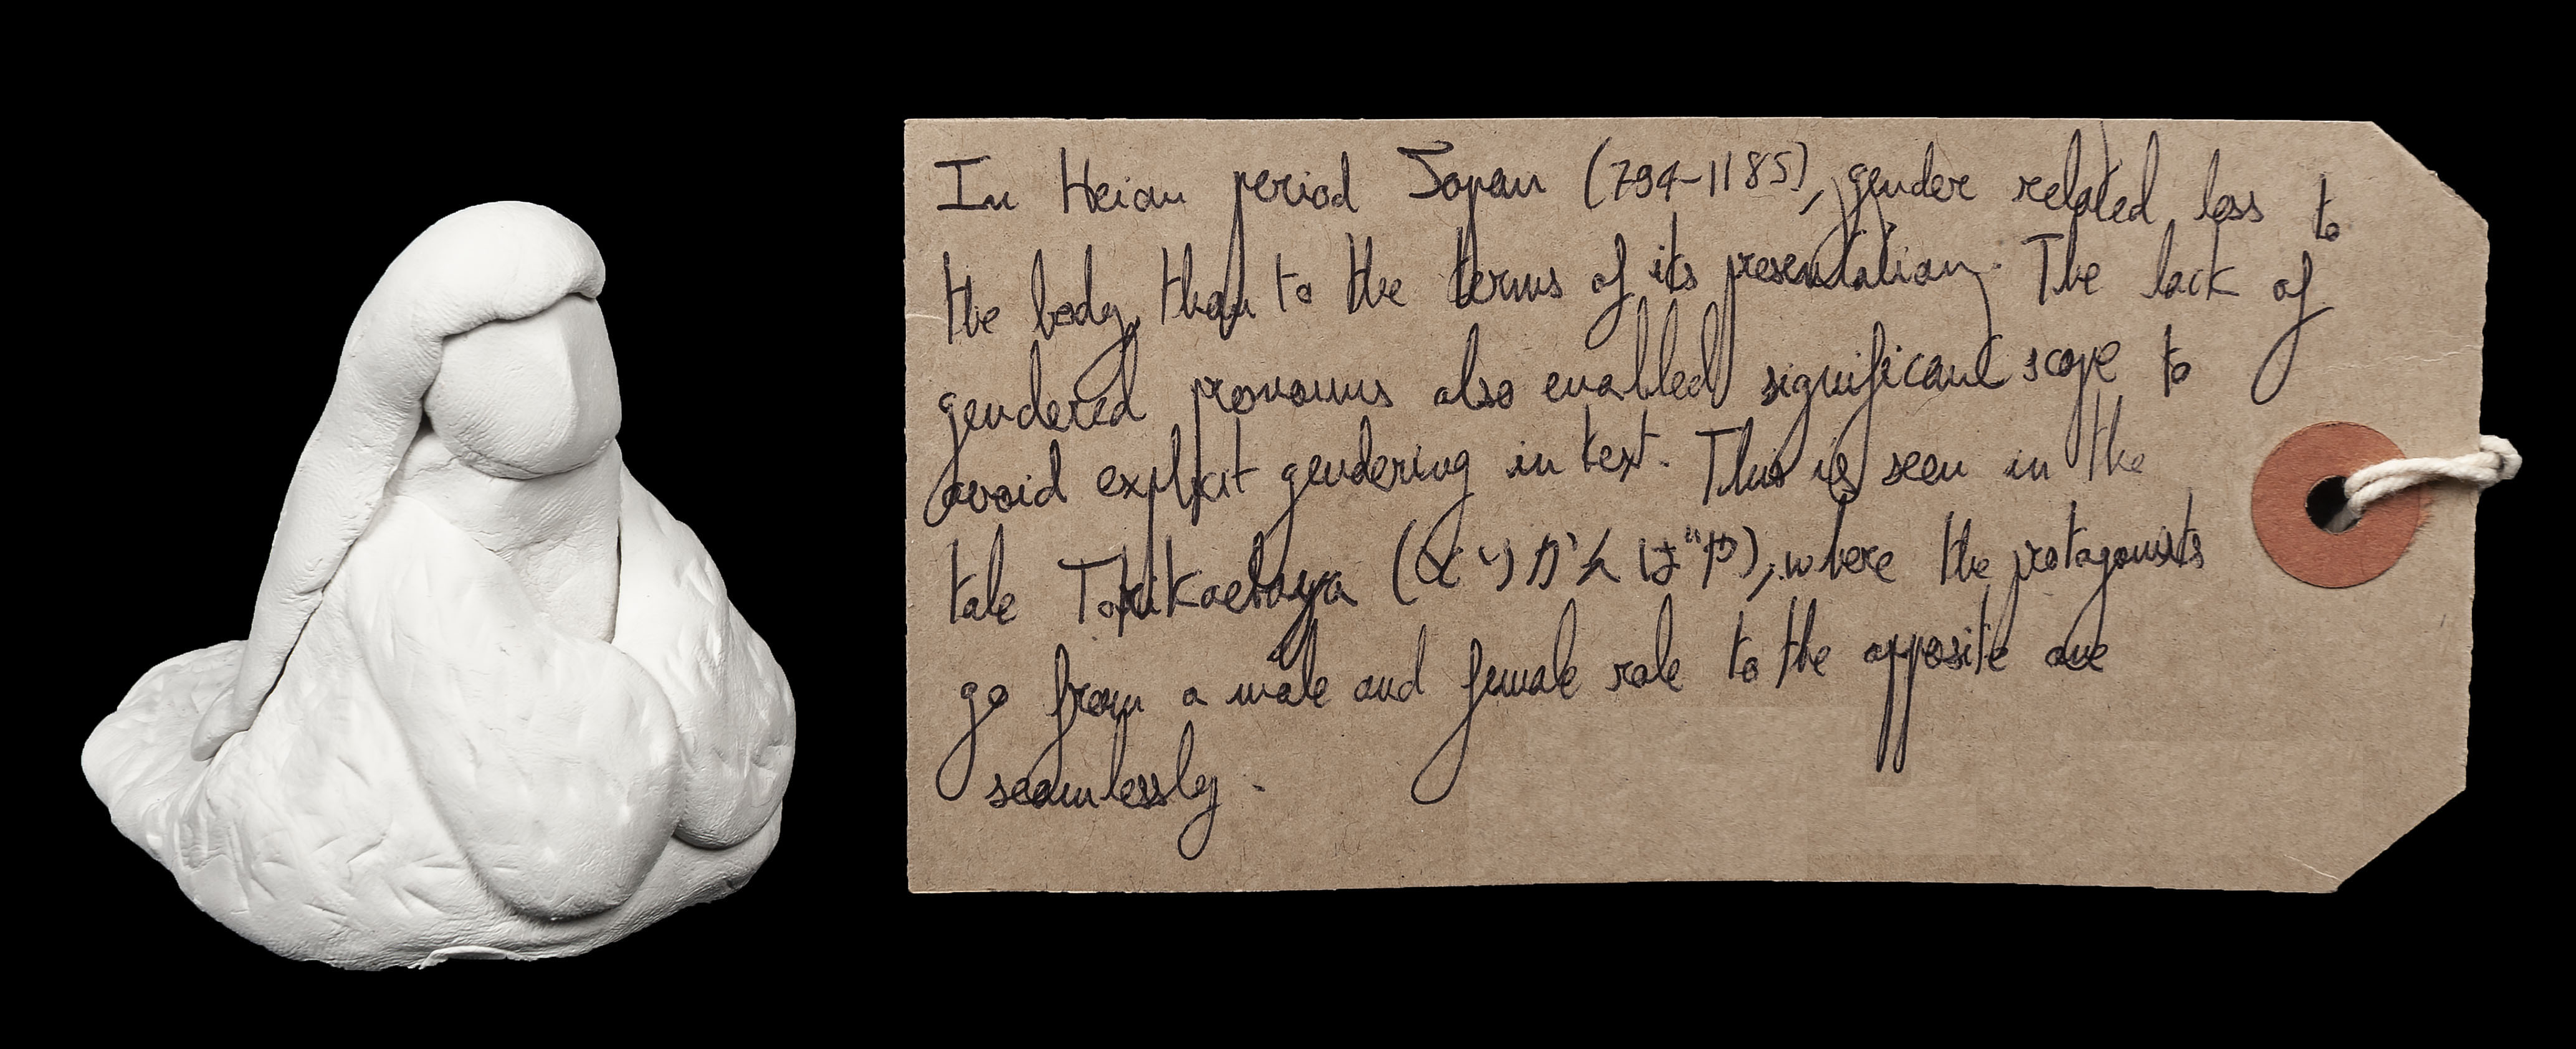 In Heian period Japan (794-1185), gender related less to
the body, than to the terms of its presentation. The lack of
gendered pronouns also enabled significant scope to
avoid explicit gendering in text. This is seen in the
tale Torikaebaya (とりかえばや), where the protagonists
go from a male and female role to the opposite one
seamlessly.